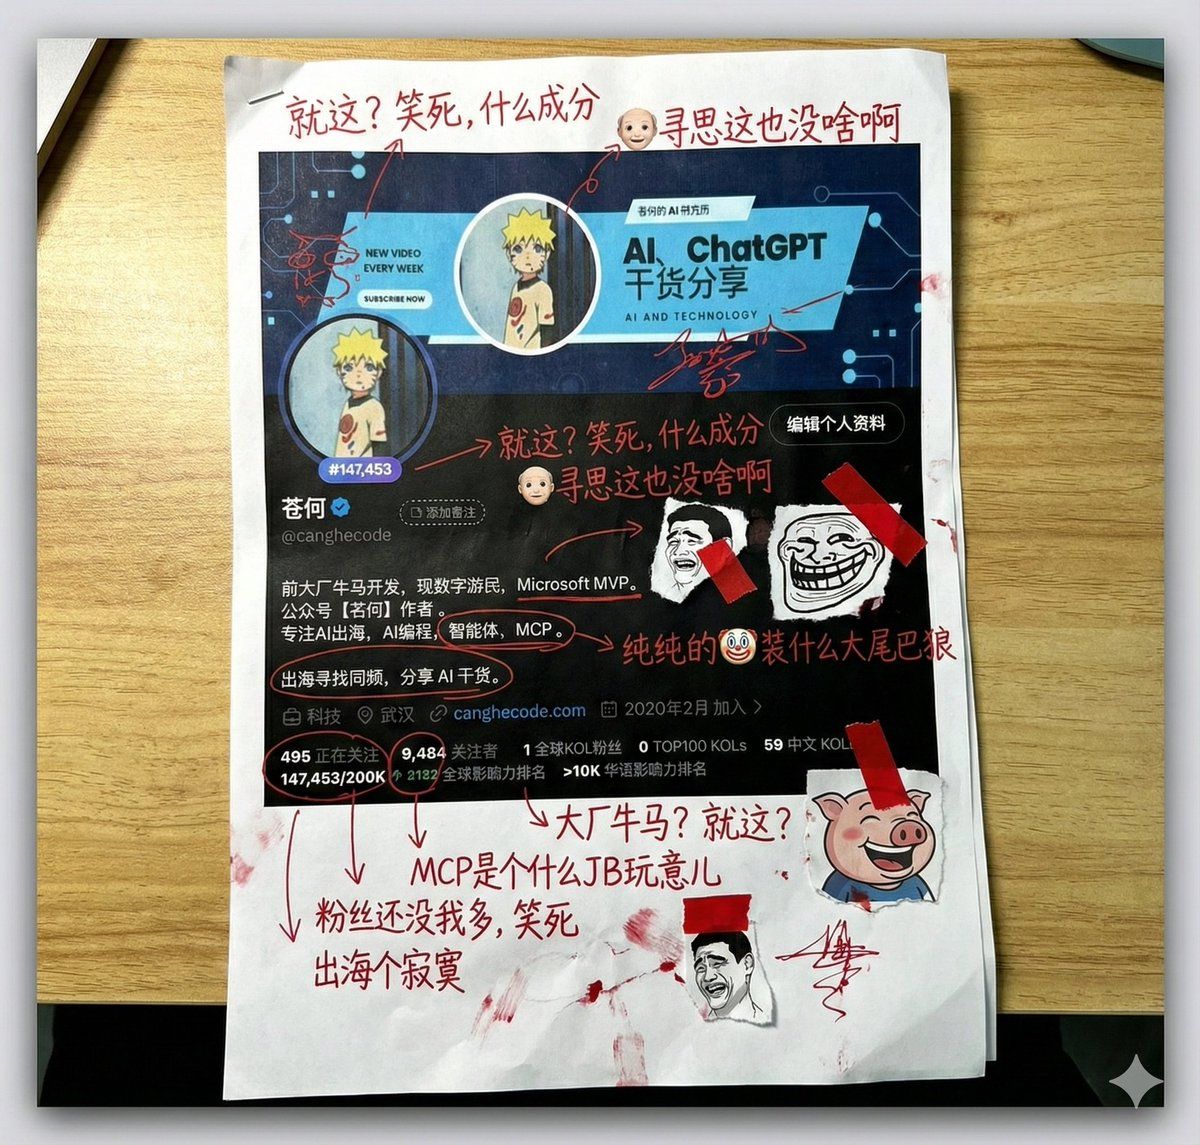 就这？笑死，什么成分
寻思这也没啥啊
苍何的 AI
NEW VIDEO
EVERY WEEK
SUBSCRIBE NOW
AI、ChatGPT
干货分享
AI AND TECHNOLOGY
编辑个人资料
就这？笑死，什么成分
寻思这也没啥啊
#147,453
苍何
添加备注
@canghecode
前大厂牛马开发，现数字游民，Microsoft MVP。
公众号【苍何】作者。
专注AI出海，AI编程，智能体，MCP。
纯纯的🤡装什么大尾巴狼
出海寻找同频，分享 AI 干货。
科技 武汉 canghecode.com 2020年2月 加入
495 正在关注 9,484 关注者 1 全球KOL粉丝 0 TOP100 KOLs 59 中文 KOL
147,453/200K 2182 全球影响力排名 >10K 华语影响力排名
大厂牛马？就这？
MCP是个什么JB玩意儿
粉丝还没我多，笑死
出海个寂寞